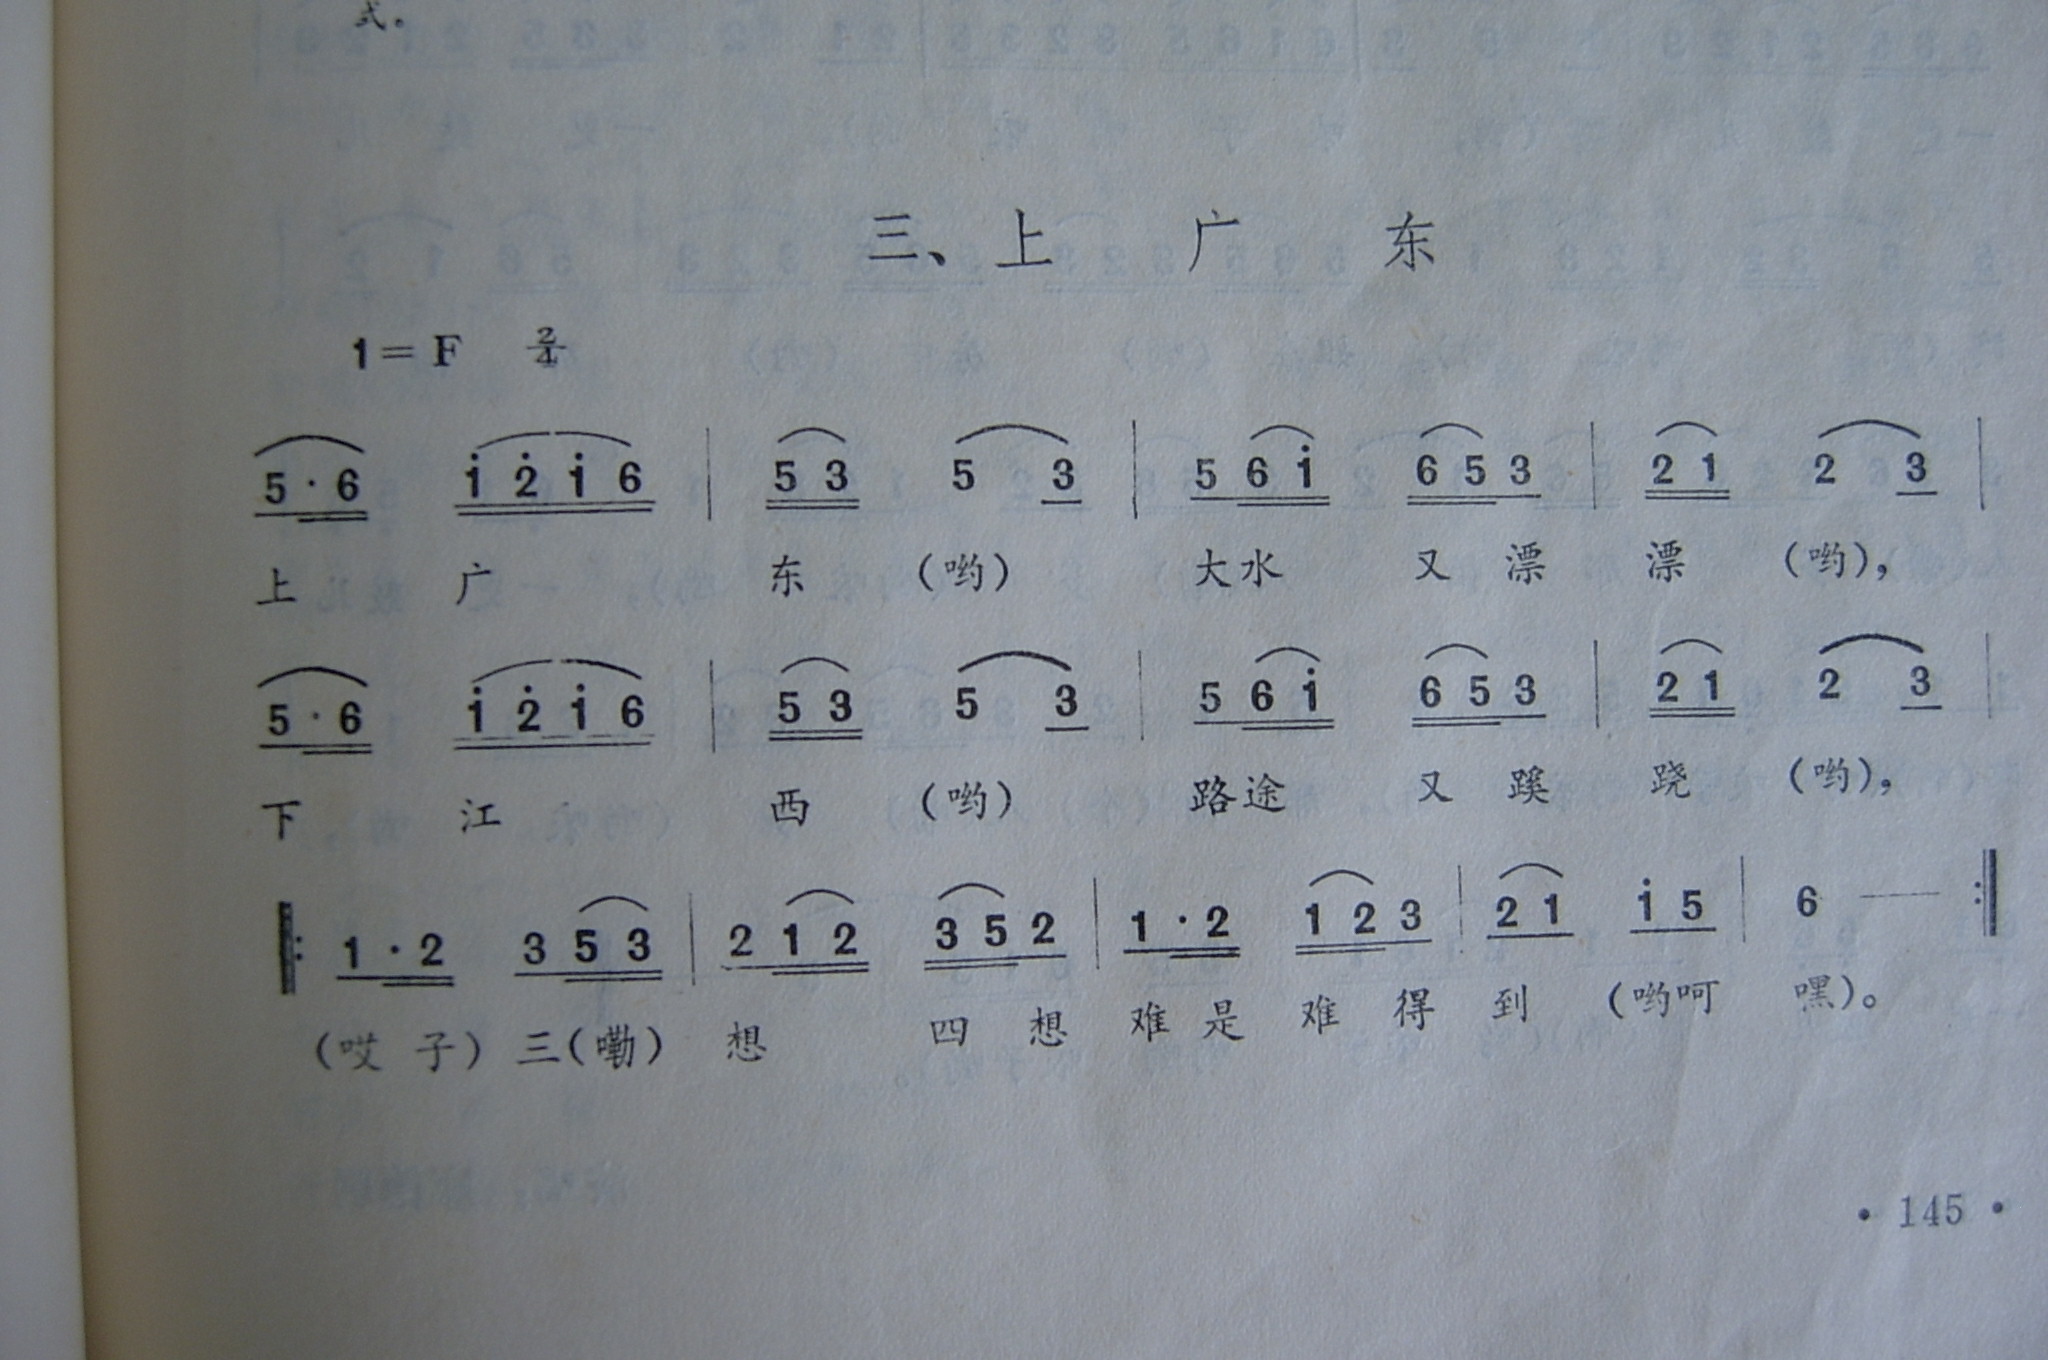 式。
三、上 广 东
1=F 2/4
5·6 i̇2̇i̇6 | 53 5 3 | 56i̇ 653 | 21 2 3 |
上 广 东 (哟) 大水 又 漂 漂 (哟),
5·6 i̇2̇i̇6 | 53 5 3 | 56i̇ 653 | 21 2 3 |
下 江 西 (哟) 路途 又 蹊 跷 (哟),
‖: 1·2 353 | 212 352 | 1·2 123 | 21 i̇5 | 6 — :‖
(哎 子) 三(嘞) 想 四 想 难 是 难 得 到 (哟呵 嘿)。
• 145 •